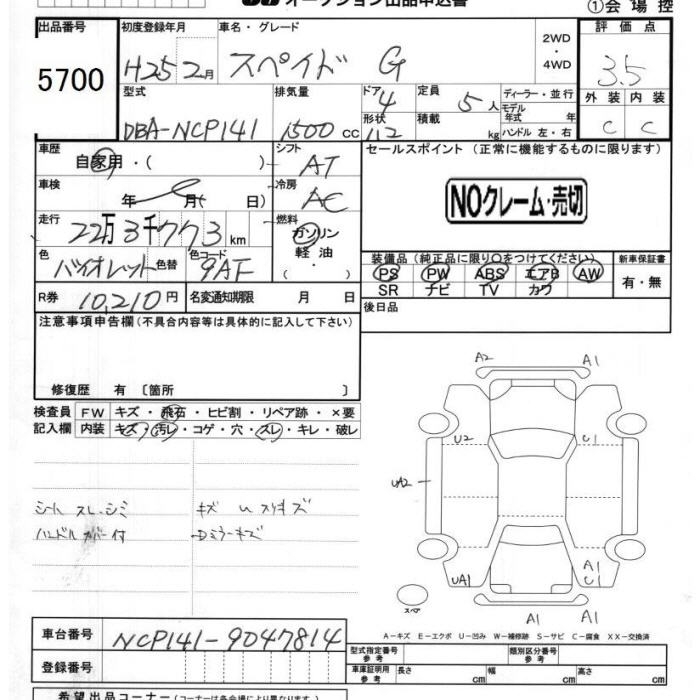 オークション出品申込書
①会場控
出品番号
5700
初度登録年月
車名・グレード
H25 2月 スペイド G
2WD
・
4WD
評価点
3.5
型式
排気量
ドア
定員
ディーラー・並行
外装 内装
DBA-NCP141
1500cc
4
5人
モデル
年式 年
形状
積載
kg
ハンドル 左・右
C C
車歴
自家用・( )
シフト
AT
セールスポイント (正常に機能するものに限ります)
車検
年 月( 日)
冷房
AC
NOクレーム・売切
走行
22万3千773km
燃料
ガソリン
軽油
・( )
色
バイオレット
色替
色コード
9AF
装備品(純正品に限り○をつけてください)
新車保証書
PS PW ABS エアB AW
SR ナビ TV カワ
有・無
R券
10,210円
名変通知期限 月 日
後日品
注意事項申告欄(不具合内容等は具体的に記入して下さい)
修復歴 有 〔箇所 〕
検査員
記入欄
FW キズ・飛石・ヒビ割・リペア跡・×要
内装 キズ・汚レ・コゲ・穴・スレ・キレ・破レ
シート スレ.シミ
キズ U スリキズ
ハンドルカバー付
Dミラーキズ
A2 A1
U2 U1
UA2
UA1
A1
U1
A1 A1
スペア
A－キズ E－エクボ U－凹み W－補修跡 S－サビ C－腐食 XX－交換済
車台番号
NCP141-9047814
登録番号
型式指定番号
参考
類別区分番号
参考
車庫証明用
参考
長さ cm 幅 cm 高さ cm
希望出品コーナー(コーナーは各会場により異なります)